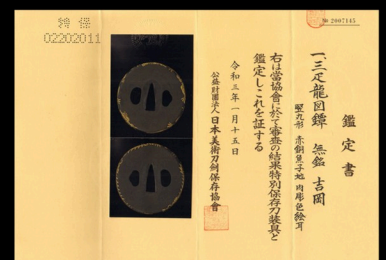 特保
02202011
№ 2007145
鑑定書
一、三疋龍図鐔 無銘 吉岡
竪丸形 赤銅魚子地 肉彫色絵耳
右は當協會に於て審査の結果特別保存刀装具と
鑑定しこれを証する
令和三年一月十五日
公益財團法人 日本美術刀剣保存協會